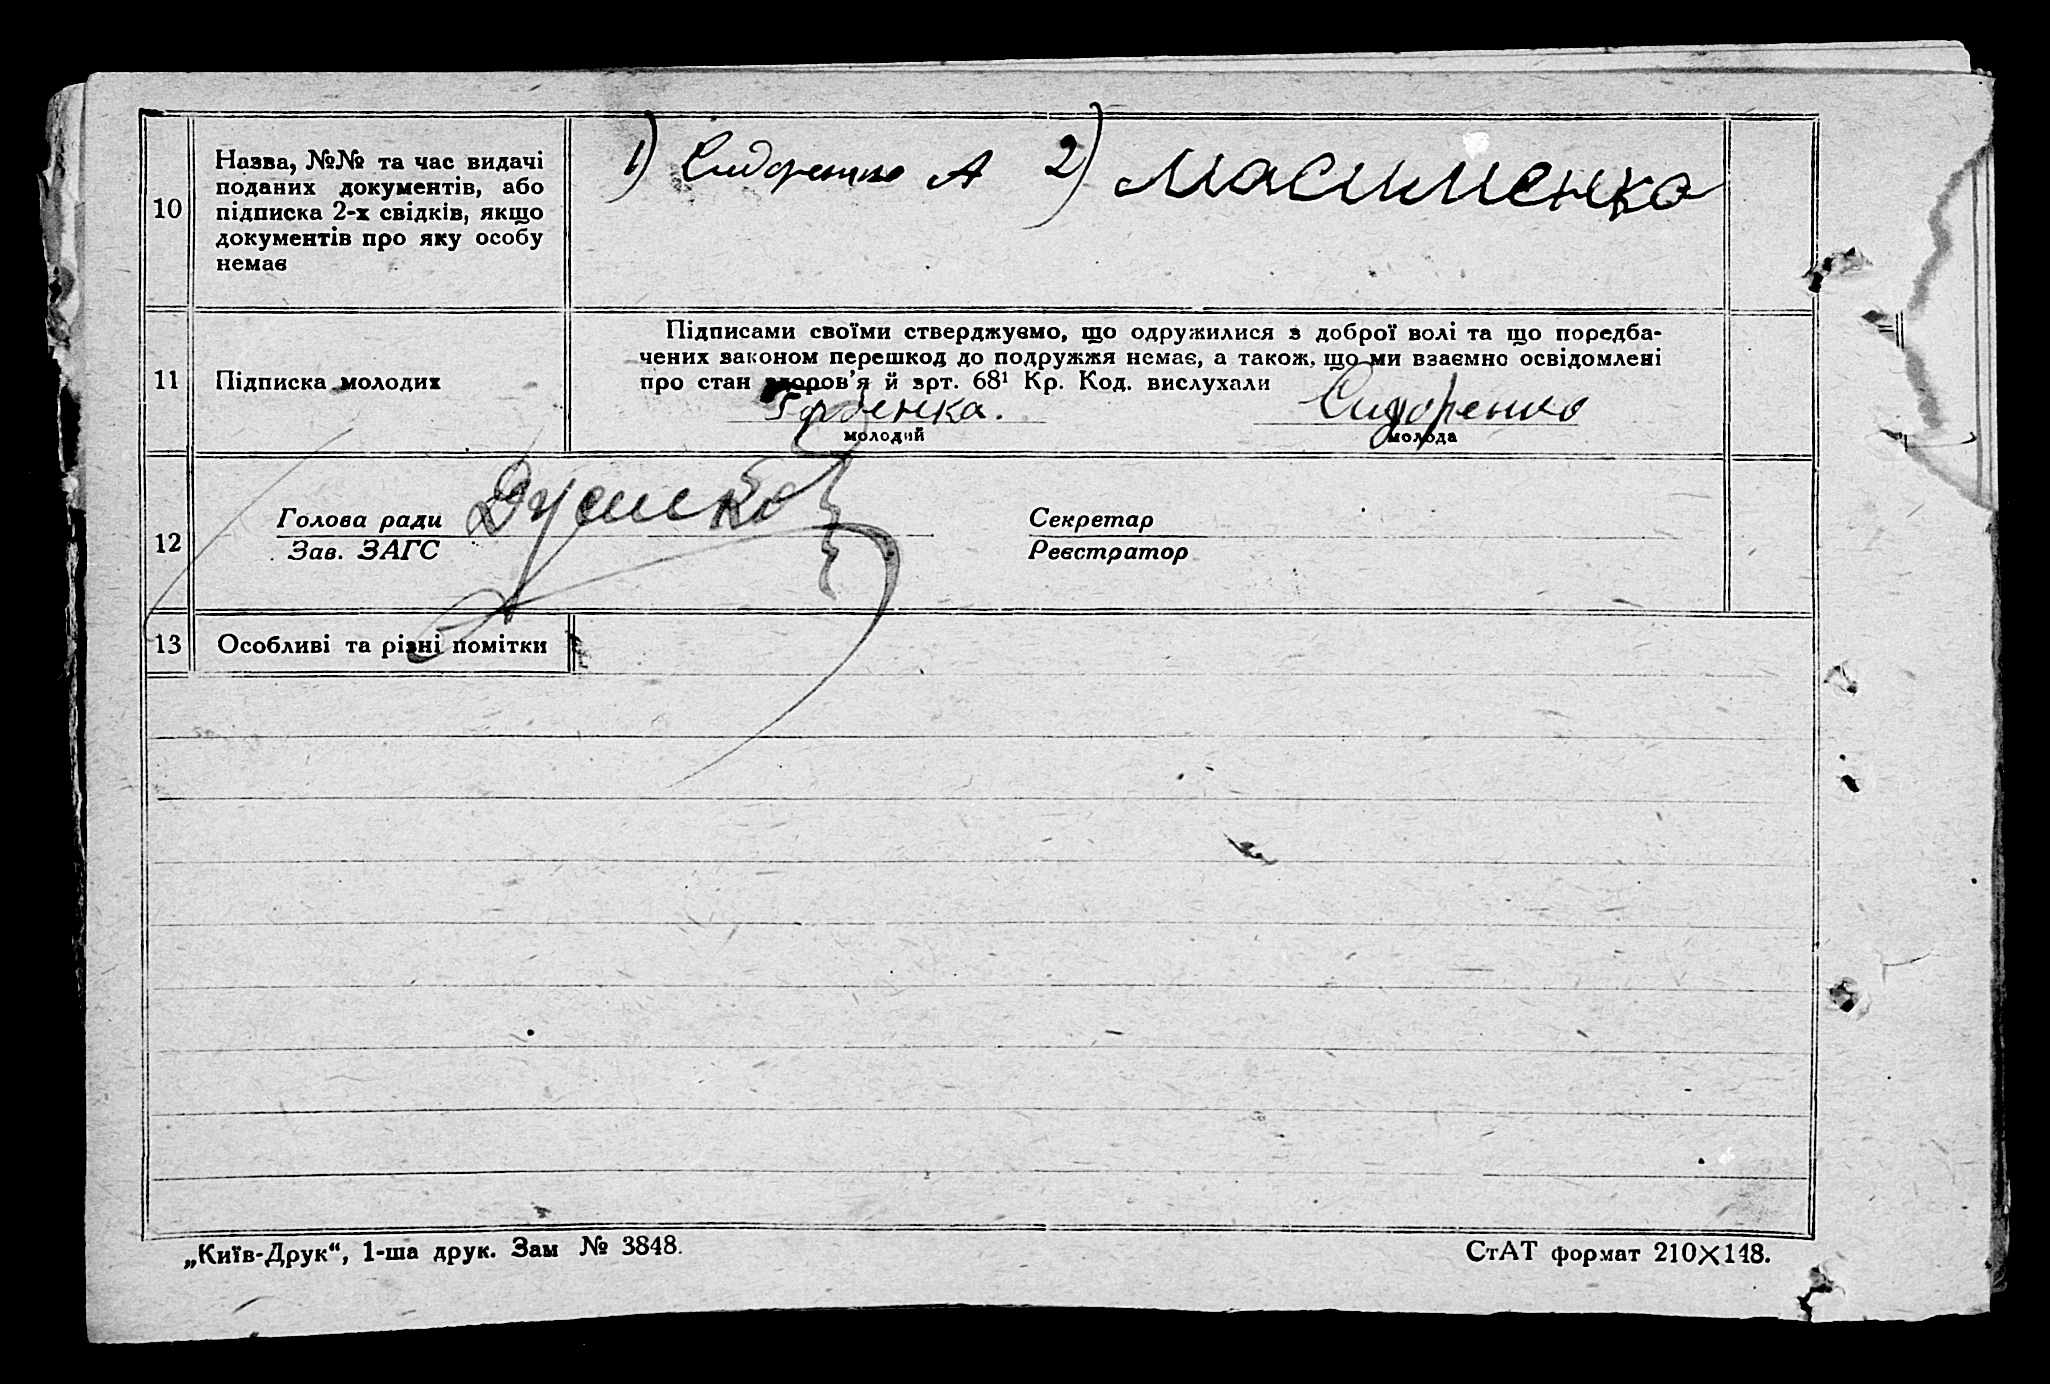 10
Назва, №№ та час видачі
поданих документів, або
підписка 2-х свідків, якщо
документів про яку особу
немає
1) Сидоренко А 2)
11
Підписка молодих
Підписами своїми стверджуємо, що одружилися з доброї волі та що поредба-
чених законом перешкод до подружжя немає, а також, що ми взаємно освідомлені
про стан здоров'я й арт. 68¹ Кр. Код. вислухали
Сидоренко
молодий
молода
12
Голова ради
Зав. ЗАГС
Секретар
Реєстратор
13
Особливі та різні помітки
„Київ-Друк“, 1-ша друк. Зам № 3848.
СтАТ формат 210×148.